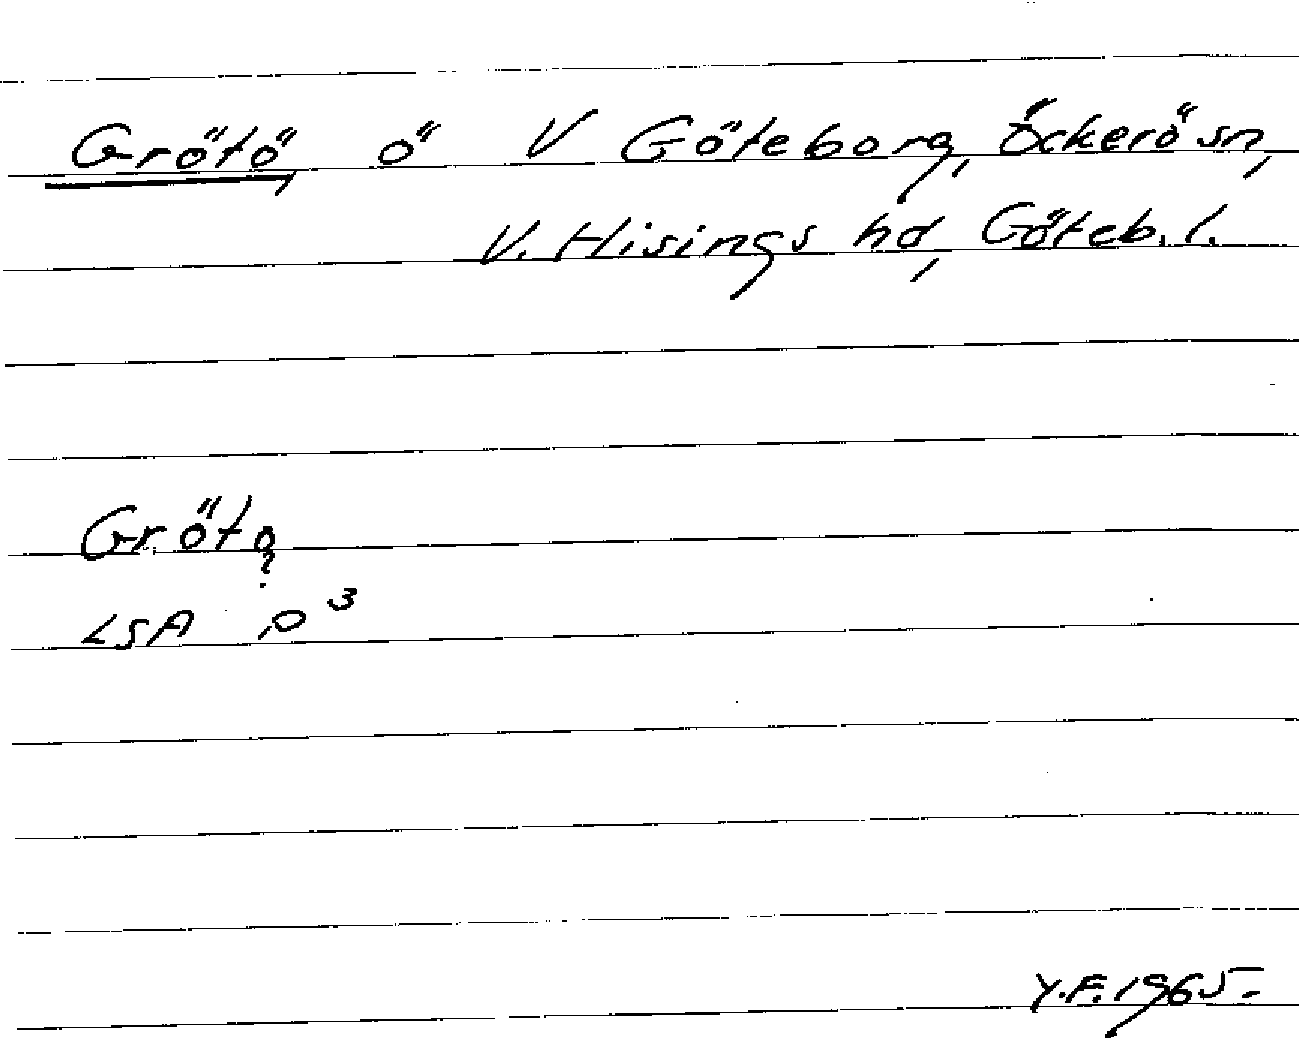 Grötö, ö V Göteborg, Öckerö sn,
V. Hisings hd, Göteb. l.
Gröto
?
LSA P³
Y.F. 1965.